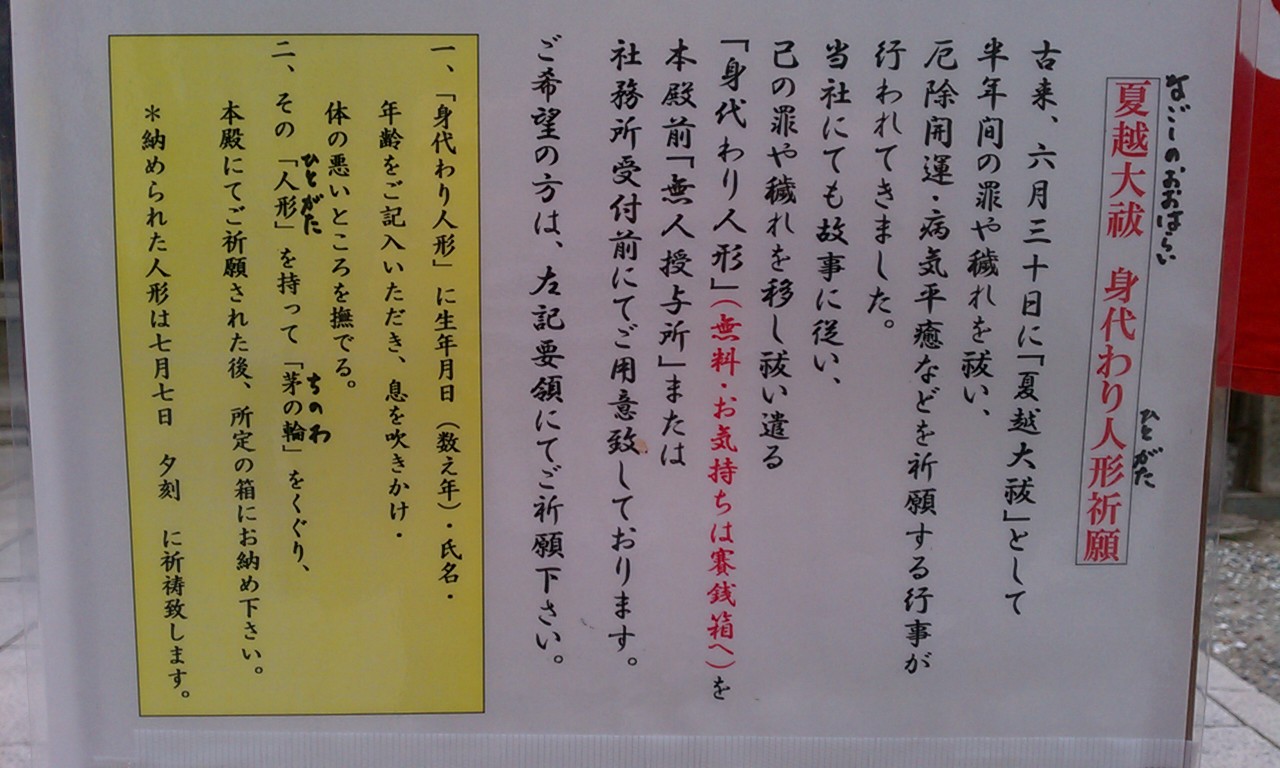 なごしのおおはらい
夏越大祓 身代わり人形祈願
ひとがた
古来、六月三十日に「夏越大祓」として
半年間の罪や穢れを祓い、
厄除開運・病気平癒などを祈願する行事が
行われてきました。
当社にても故事に従い、
己の罪や穢れを移し祓い遣る
「身代わり人形」(無料・お気持ちは賽銭箱へ)を
本殿前「無人授与所」または
社務所受付前にてご用意致しております。
ご希望の方は、左記要領にてご祈願下さい。
一、「身代わり人形」に生年月日(数え年)・氏名・
年齢をご記入いただき、息を吹きかけ・
体の悪いところを撫でる。
ひとがた ちのわ
二、その「人形」を持って「茅の輪」をくぐり、
本殿にてご祈願された後、所定の箱にお納め下さい。
*納められた人形は七月七日 夕刻 に祈祷致します。